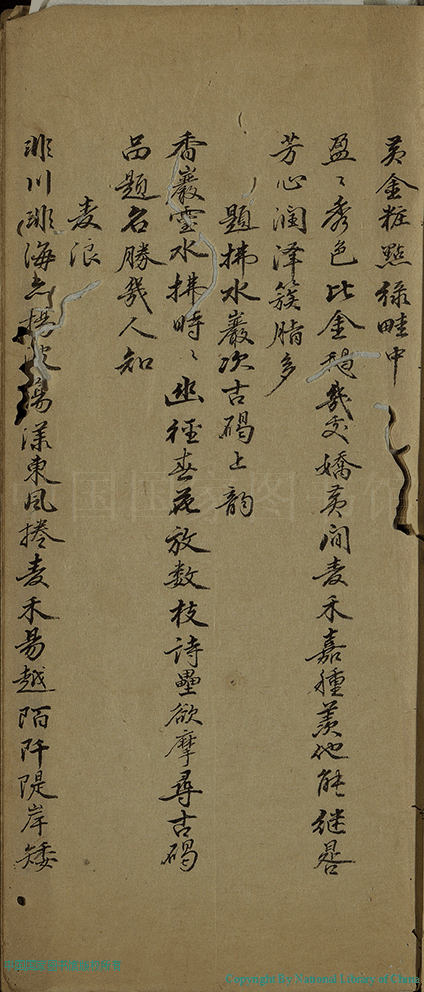 黄金粧點緑畦中
盈〻秀色比金 幾交嬌黄间麦禾嘉種羡他能继晷
芳心润澤簇脂多
題拂水巖次古碣上韵
香巖雲水拂時〻幽徑春花放数枝詩壘欲摩尋古碣
品題名勝幾人知
麦浪
非川 海 揚 漾東風捲麦禾易越陌阡隄岸矮
Copyright By National Library of China